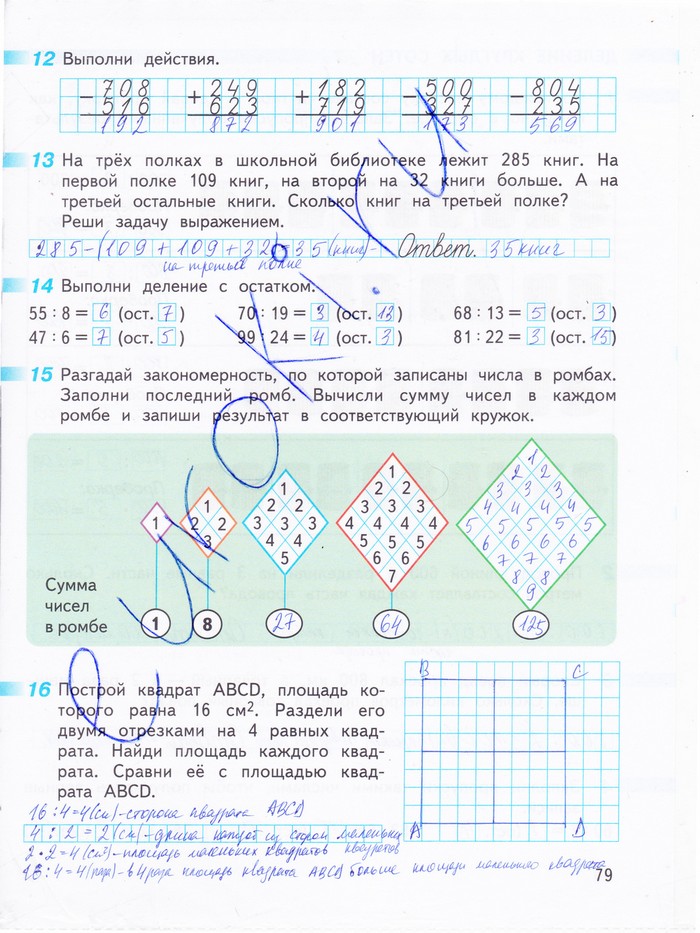 12 Выполни действия.
− 708 + 249 + 182 − 500 − 804
516 623 719 327 235
192 872 901 173 569
13 На трёх полках в школьной библиотеке лежит 285 книг. На
первой полке 109 книг, на второй на 32 книги больше. А на
третьей остальные книги. Сколько книг на третьей полке?
Реши задачу выражением.
285-(109+109+32)=35(книг)- Ответ. 35 книг
на третьей полке
14 Выполни деление с остатком.
55 : 8 = 6 (ост. 7) 70 : 19 = 3 (ост. 13) 68 : 13 = 5 (ост. 3)
47 : 6 = 7 (ост. 5) 99 : 24 = 4 (ост. 3) 81 : 22 = 3 (ост. 15)
15 Разгадай закономерность, по которой записаны числа в ромбах.
Заполни последний ромб. Вычисли сумму чисел в каждом
ромбе и запиши результат в соответствующий кружок.
1
1
2 2
3
1
2 2
3 3 3
4 4
5
1
2 2
3 3 3
4 4 4 4
5 5 5
6 6
7
1
2 2
3 3 3
4 4 4 4
5 5 5 5 5
6 6 6 6
7 7 7
8 8
9
Сумма
чисел
в ромбе 1 8 27 64 125
16 Построй квадрат ABCD, площадь ко-
торого равна 16 см². Раздели его
двумя отрезками на 4 равных квад-
рата. Найди площадь каждого квад-
рата. Сравни её с площадью квад-
рата ABCD.
B C
A D
16:4=4(см)-сторона квадрата ABCD
4:2=2(см)-длина каждой из сторон маленьких
2·2=4(см²)-площадь маленьких квадратов квадратов
:4=4(раза)-в 4 раза площадь квадрата ABCD больше площади маленького квадрата
79